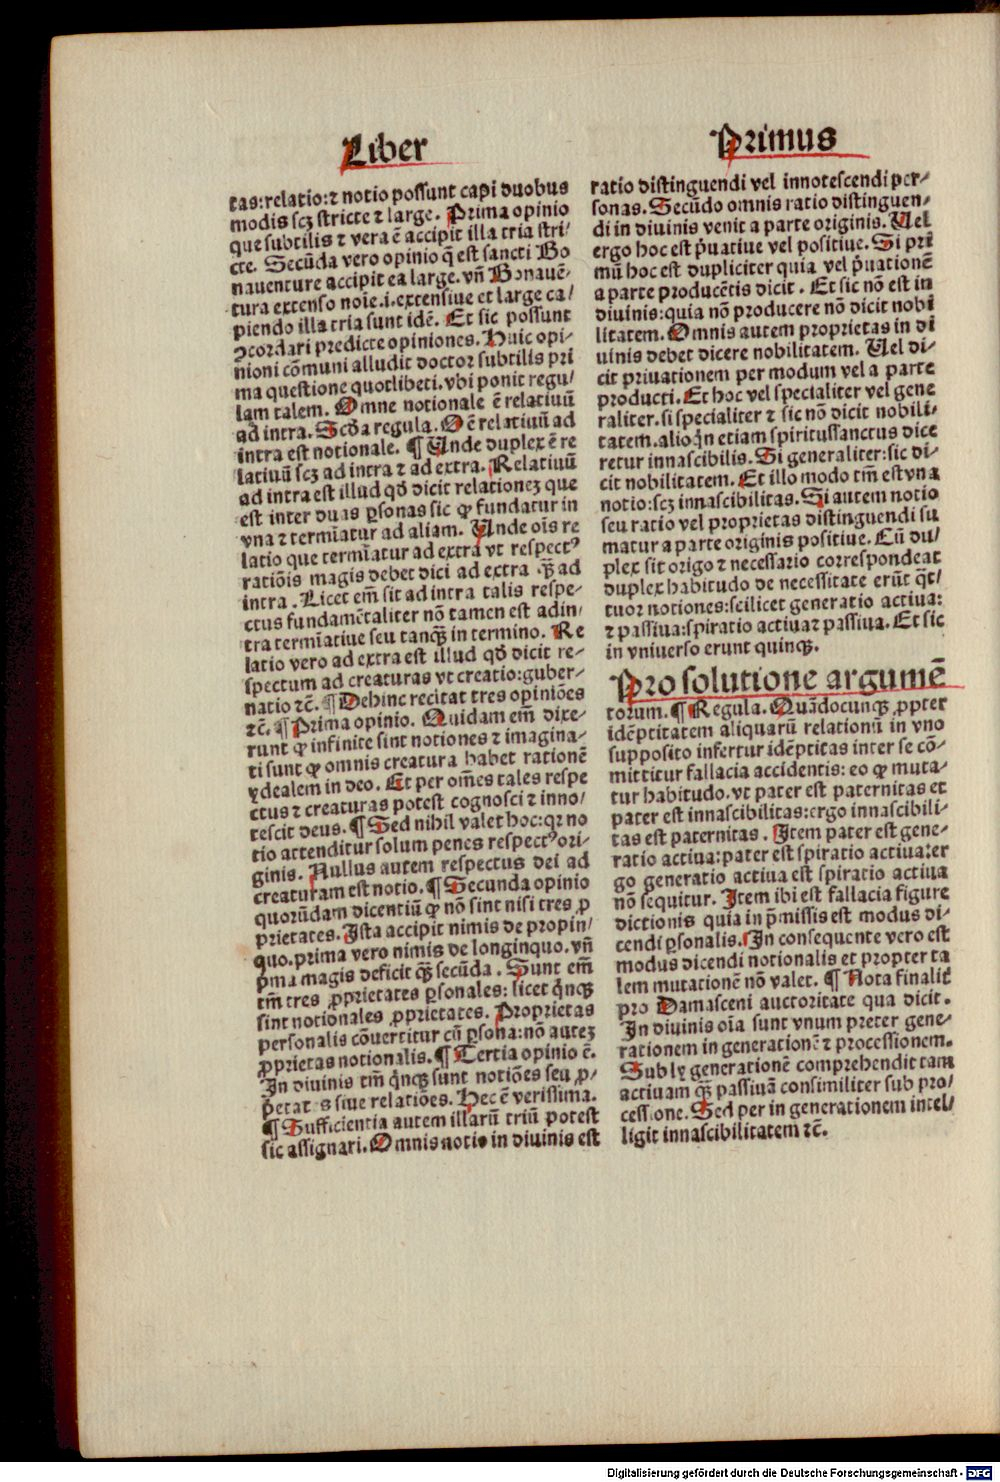 Liber
tas:relatio:⁊ notio possunt capi duobus
modis scꝫ stricte ⁊ large. Prima opinio
que subtilis ⁊ vera ē accipit illa tria stri⸗
cte. Secūda vero opinio q̄ est sancti Bo
nauenture accipit ea large. vn̄ Bonauē⸗
tura extenso noīe.i.extensiue et large ca/
piendo illa tria sunt idē. Et sic possunt
ꝯcordari predicte opiniones. Huic opi⸗
nioni cōmuni alludit doctor subtilis pri
ma questione quotlibeti. vbi ponit regu/
lam talem. Omne notionale ē relatiuū
ad intra. Scd̄a regula. Oē relatiuū ad
intra est notionale. ¶ Unde duplex ē re
latiuū scꝫ ad intra ⁊ ad extra. Relatiuū
ad intra est illud qd̄ dicit relationeꝫ que
est inter duas ꝑsonas sic ꝙ fundatur in
vna ⁊ termīatur ad aliam. Unde oīs re
latio que termīatur ad extra vt respectꝰ
ratiōis magis debet dici ad extra qꝫ̄ ad
intra. Licet em̄ sit ad intra talis respe⸗
ctus fundamētaliter nō tamen est ad in/
tra termīatiue seu tanqꝫ̄ in termino. Re
latio vero ad extra est illud qd̄ dicit re⸗
spectum ad creaturas vt creatio:guber⸗
natio ⁊c̄. ¶ Dehinc recitat tres opiniōes
⁊c̄. ¶ Prima opinio. Quidam em̄ dixe⸗
runt ꝙ infinite sint notiones ⁊ imagina⸗
ti sunt ꝙ omnis creatura habet rationē
ydealem in deo. Et per om̄es tales respe
ctus ⁊ creaturas potest cognosci ⁊ inno/
tescit deus. ¶ Sed nihil valet hoc:qꝛ no
tio attenditur solum penes respectꝰ ori⸗
ginis. Nullus autem respectus dei ad
creaturam est notio. ¶ Secunda opinio
quorūdam dicentiū ꝙ nō sint nisi tres ꝓ
prietates. Ista accipit nimis de propin/
quo. prima vero nimis de longinquo. vn̄
p̄ma magis deficit qꝫ̄ secūda. Sunt em̄
tm̄ tres ꝓprietates ꝑsonales: licet q̄nqꝫ
sint notionales ꝓprietates. Proprietas
personalis cōuertitur cū ꝑsona:nō auteꝫ
ꝓprietas notionalis. ¶ Tertia opinio ē.
In diuinis tm̄ q̄nqꝫ sunt notiōes seu ꝓ/
p̄etates siue relatiōes. Hec ē verissima.
¶ Sufficientia autem illarū triū potest
sic assignari. Omnis notio in diuinis est
Primus
ratio distinguendi vel innotescendi per⸗
sonas. Secūdo omnis ratio distinguen⸗
di in diuinis venit a parte originis. Uel
ergo hoc est p̄uatiue vel positiue. Si pri
mū hoc est dupliciter quia vel p̄uationē
a parte producētis dicit. Et sic nō est in
diuinis:quia nō producere nō dicit nobi
litatem. Omnis autem proprietas in di
uinis debet dicere nobilitatem. Uel di⸗
cit priuationem per modum vel a parte
producti. Et hoc vel specialiter vel gene
raliter. si specialiter ⁊ sic nō dicit nobili⸗
tatem. alioq̄n etiam spiritussanctus dice
retur innascibilis. Si generaliter:sic di⸗
cit nobilitatem. Et illo modo tm̄ est vna
notio:scꝫ innascibilitas. Si autem notio
seu ratio vel proprietas distinguendi su
matur a parte originis positiue. Cū du/
plex sit origo ⁊ necessario correspondeat
duplex habitudo de necessitate erūt q̄t/
tuor notiones:scilicet generatio actiua:
⁊ passiua:spiratio actiua⁊ passiua. Et sic
in vniuerso erunt quinqꝫ.
Pro solutione argumē
torum. ¶ Regula. Quādocunqꝫ ꝓpter
idēptitatem aliquarū relationū in vno
supposito infertur idēptitas inter se cō⸗
mittitur fallacia accidentis: eo ꝙ muta⸗
tur habitudo. vt pater est paternitas et
pater est innascibilitas:ergo innascibili⸗
tas est paternitas. Item pater est gene⸗
ratio actiua:pater est spiratio actiua:er
go generatio actiua est spiratio actiua
nō sequitur. Item ibi est fallacia figure
dictionis quia in p̄missis est modus di⸗
cendi ꝑsonalis. In consequente vero est
modus dicendi notionalis et propter ta
lem mutationē nō valet. ¶ Nota finalit̄
pro Damasceni auctoritate qua dicit.
In diuinis oīa sunt vnum preter gene⸗
rationem in generationē ⁊ processionem.
Sub ly generationē comprehendit tam
actiuam qꝫ̄ passiuā consimiliter sub pro/
cessione. Sed per in generationem intel/
ligit innascibilitatem ⁊c̄.
Digitalisierung gefördert durch die Deutsche Forschungsgemeinschaft - DFG